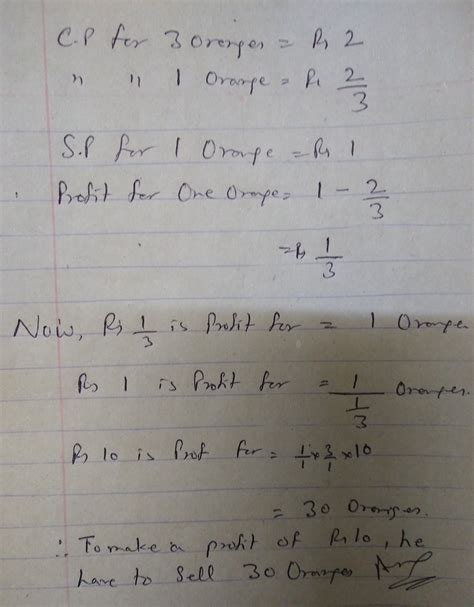 C.P for 3 Oranges = Rs 2
" " 1 Orange = Rs 2/3
S.P for 1 Orange = Rs 1
Profit for One Orange = 1 - 2/3
= Rs 1/3
Now, Rs 1/3 is Profit for = 1 Orange
Rs 1 is Profit for = 1/(1/3) Oranges.
Rs 10 is Prof for = 1/1 × 3/1 × 10
= 30 Oranges.
∴ To make a profit of Rs 10, he
have to Sell 30 Oranges Ans